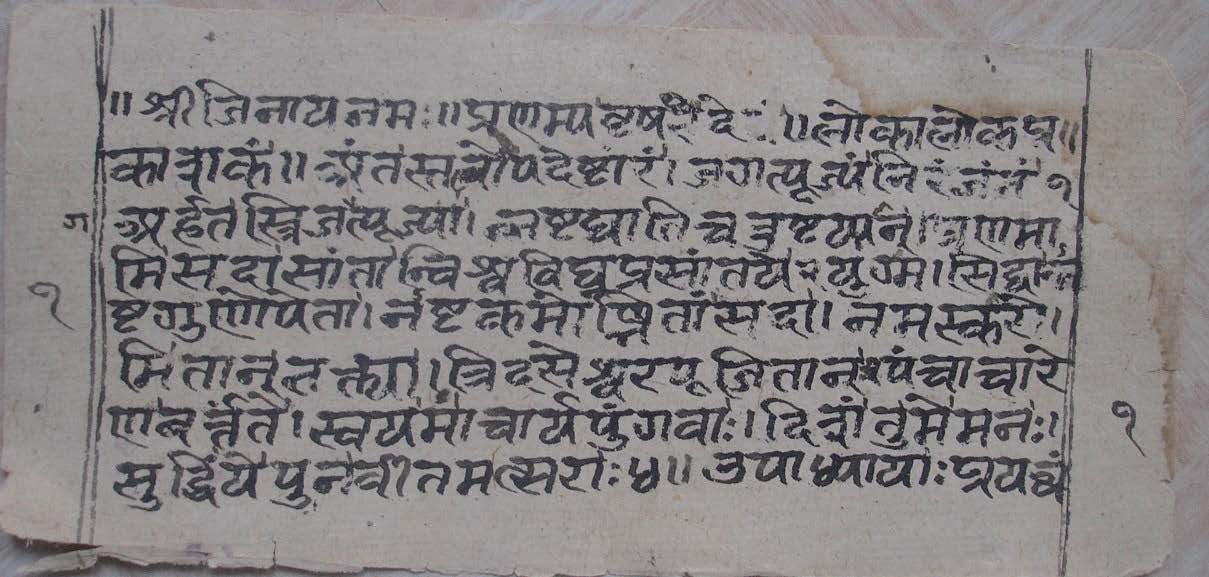 ॥ श्री जिनाय नमः ॥ प्रणम्य वृषभं दे ॥ लोकालोकप्र॥
काशकं ॥ शांतस्तत्वोपदेष्टारं । जगत्पूज्यं निरंजनं १
अर्हतस्त्रिजत्पूज्या । न्नष्टघातिचतुष्टयान् । प्रणमा
मि सदा सांतान्विश्वविघ्नप्रसांतये २ युग्म । सिद्धान
ष्टगुणोपेता । नष्टकर्मा सदा । नमस्करो ।
मि तान् भक्त्या । त्रिदसेश्वरपूजितान् पंचाचारे
ण वर्त्तंते । स्वयमाचार्यपुंगवाः । दिशंतु मे मनः ।
सुद्धिं ये पुनर्वीतमत्सराः ४ ॥ उपाध्यायाः प्रयछं
१
१